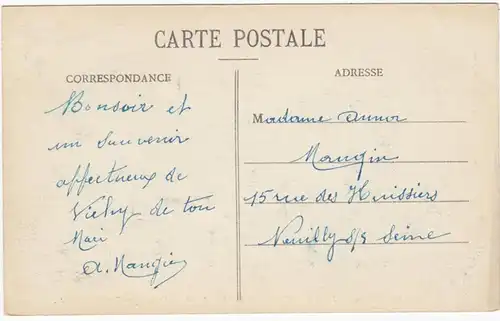 CARTE POSTALE
CORRESPONDANCE
Bonsoir et
un souvenir
affectueux de
Vichy de ton
Mari
A. Mangin
ADRESSE
Madame
Mangin
15 rue des Huissiers
Neuilly s/s Seine